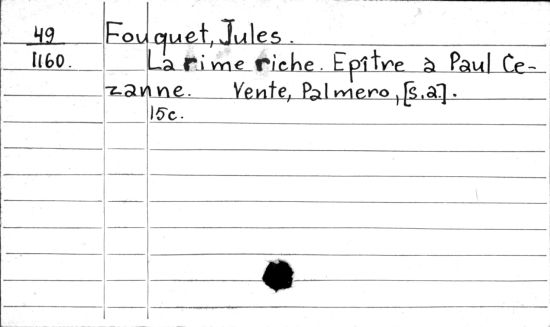 49 Fouquet, Jules.
1160. La rime riche. Epître à Paul Ce-
zanne. Vente, Palmero, [s.a.].
15c.